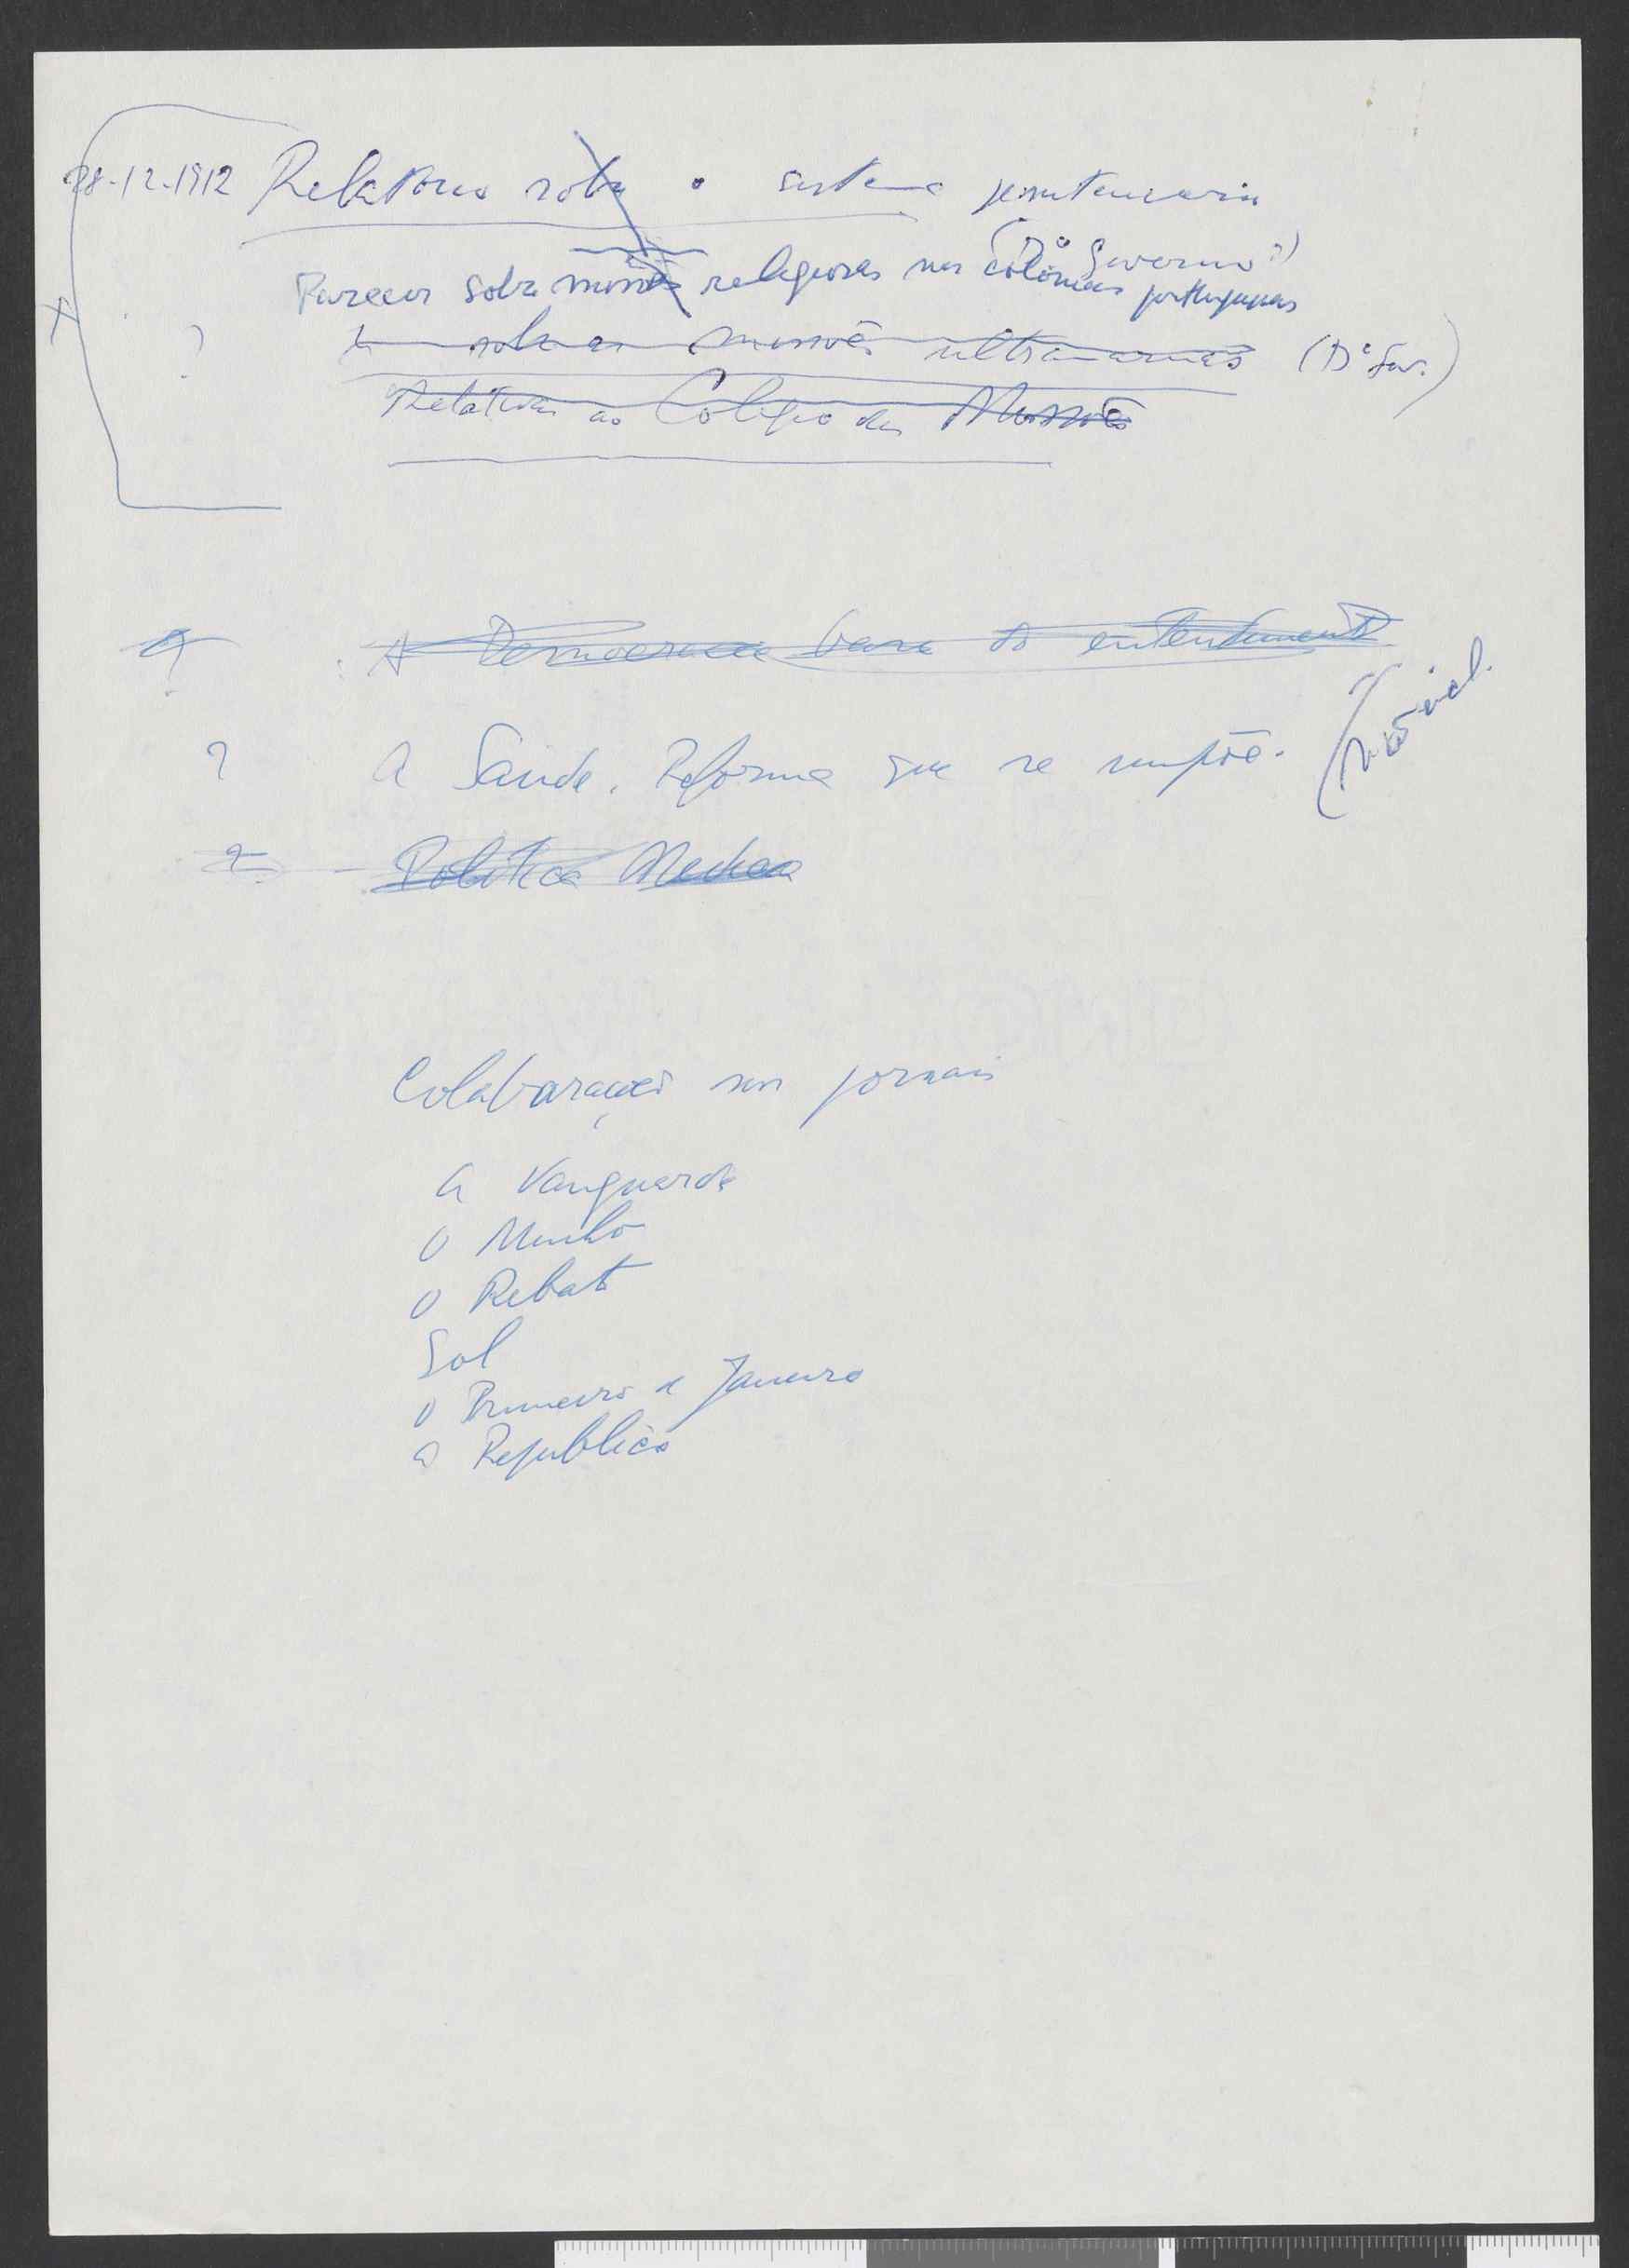 28-12-1912 Relatorio sobre o sistema penitenciario
(Dº Governo?)
Parecer sobre missões religiosas nas colónias portuguesas
? sobre as missões ultramarinas (Dº Gov.)
Relativas ao Colégio das Missões
? A Democracia base do entendimento
? A Saúde. Reforma que se impõe.
? - Politica Medica
Colaborações nos jornais
A Vanguarda
O Minho
O Rebate
Sol
O Primeiro de Janeiro
A Republica